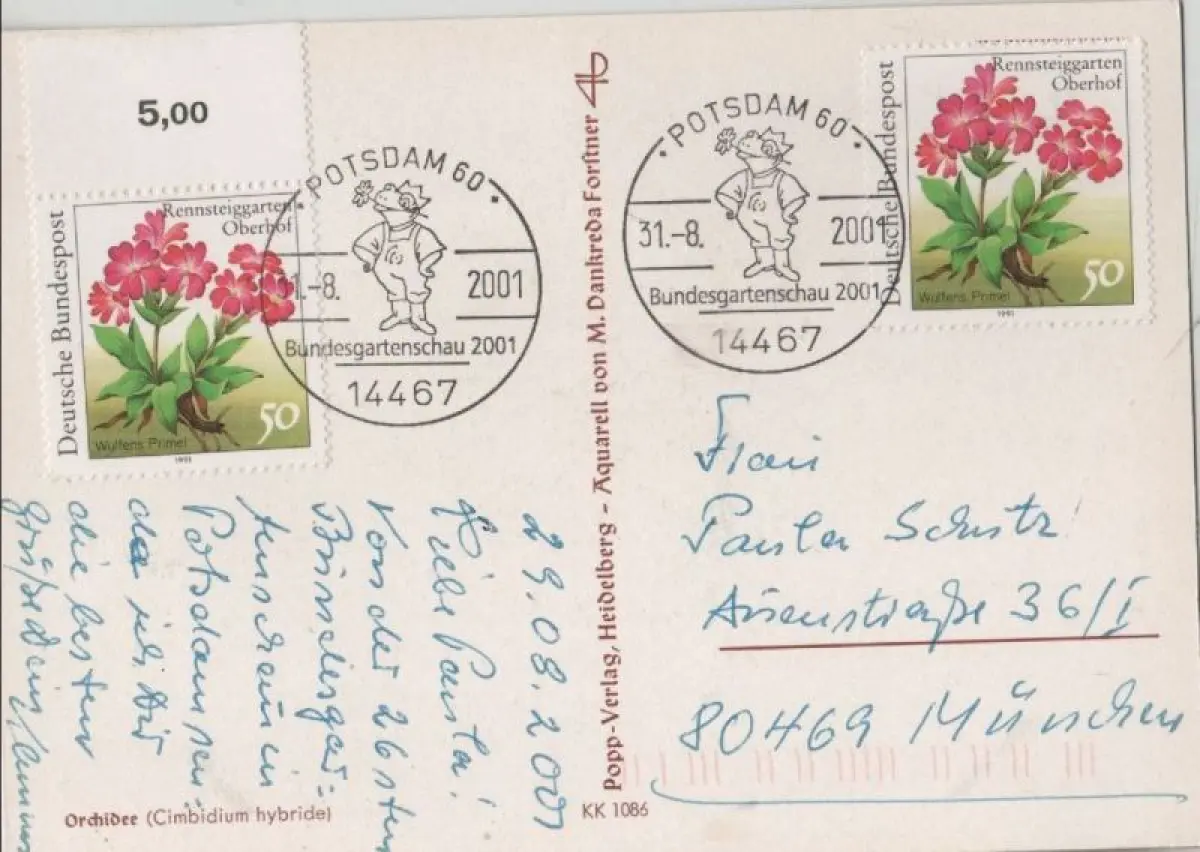 5,00
Deutsche Bundespost
Rennsteiggarten
Oberhof
Wulfens Primel
50
1991
POTSDAM 60
1.-8. 2001
Bundesgartenschau 2001
14467
Deutsche Bundespost
Rennsteiggarten
Oberhof
Wulfens Primel
50
1991
POTSDAM 60
31.-8. 2001
Bundesgartenschau 2001
14467
29.08.2001
Liebe Paula!
Von der 26sten
Bundesgar-
tenschau in
Potsdam sen-
de ich Dir
die besten
Grüße Dein
Popp-Verlag, Heidelberg - Aquarell von M. Dankreda Forstner
Frau
Paula
80469 München
36/I
Orchidee (Cimbidium hybride)
KK 1086